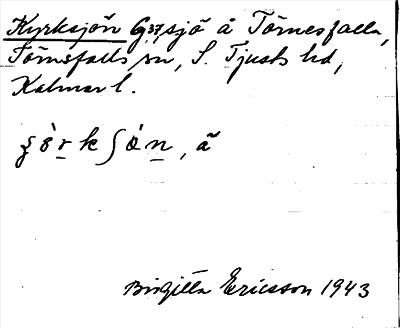 Kyrksjön G37, sjö å Törnesfalla,
Törnsfalls sn, S. Tjusts hd,
Kalmar l.
, ã
Birgitta Ericsson 1943